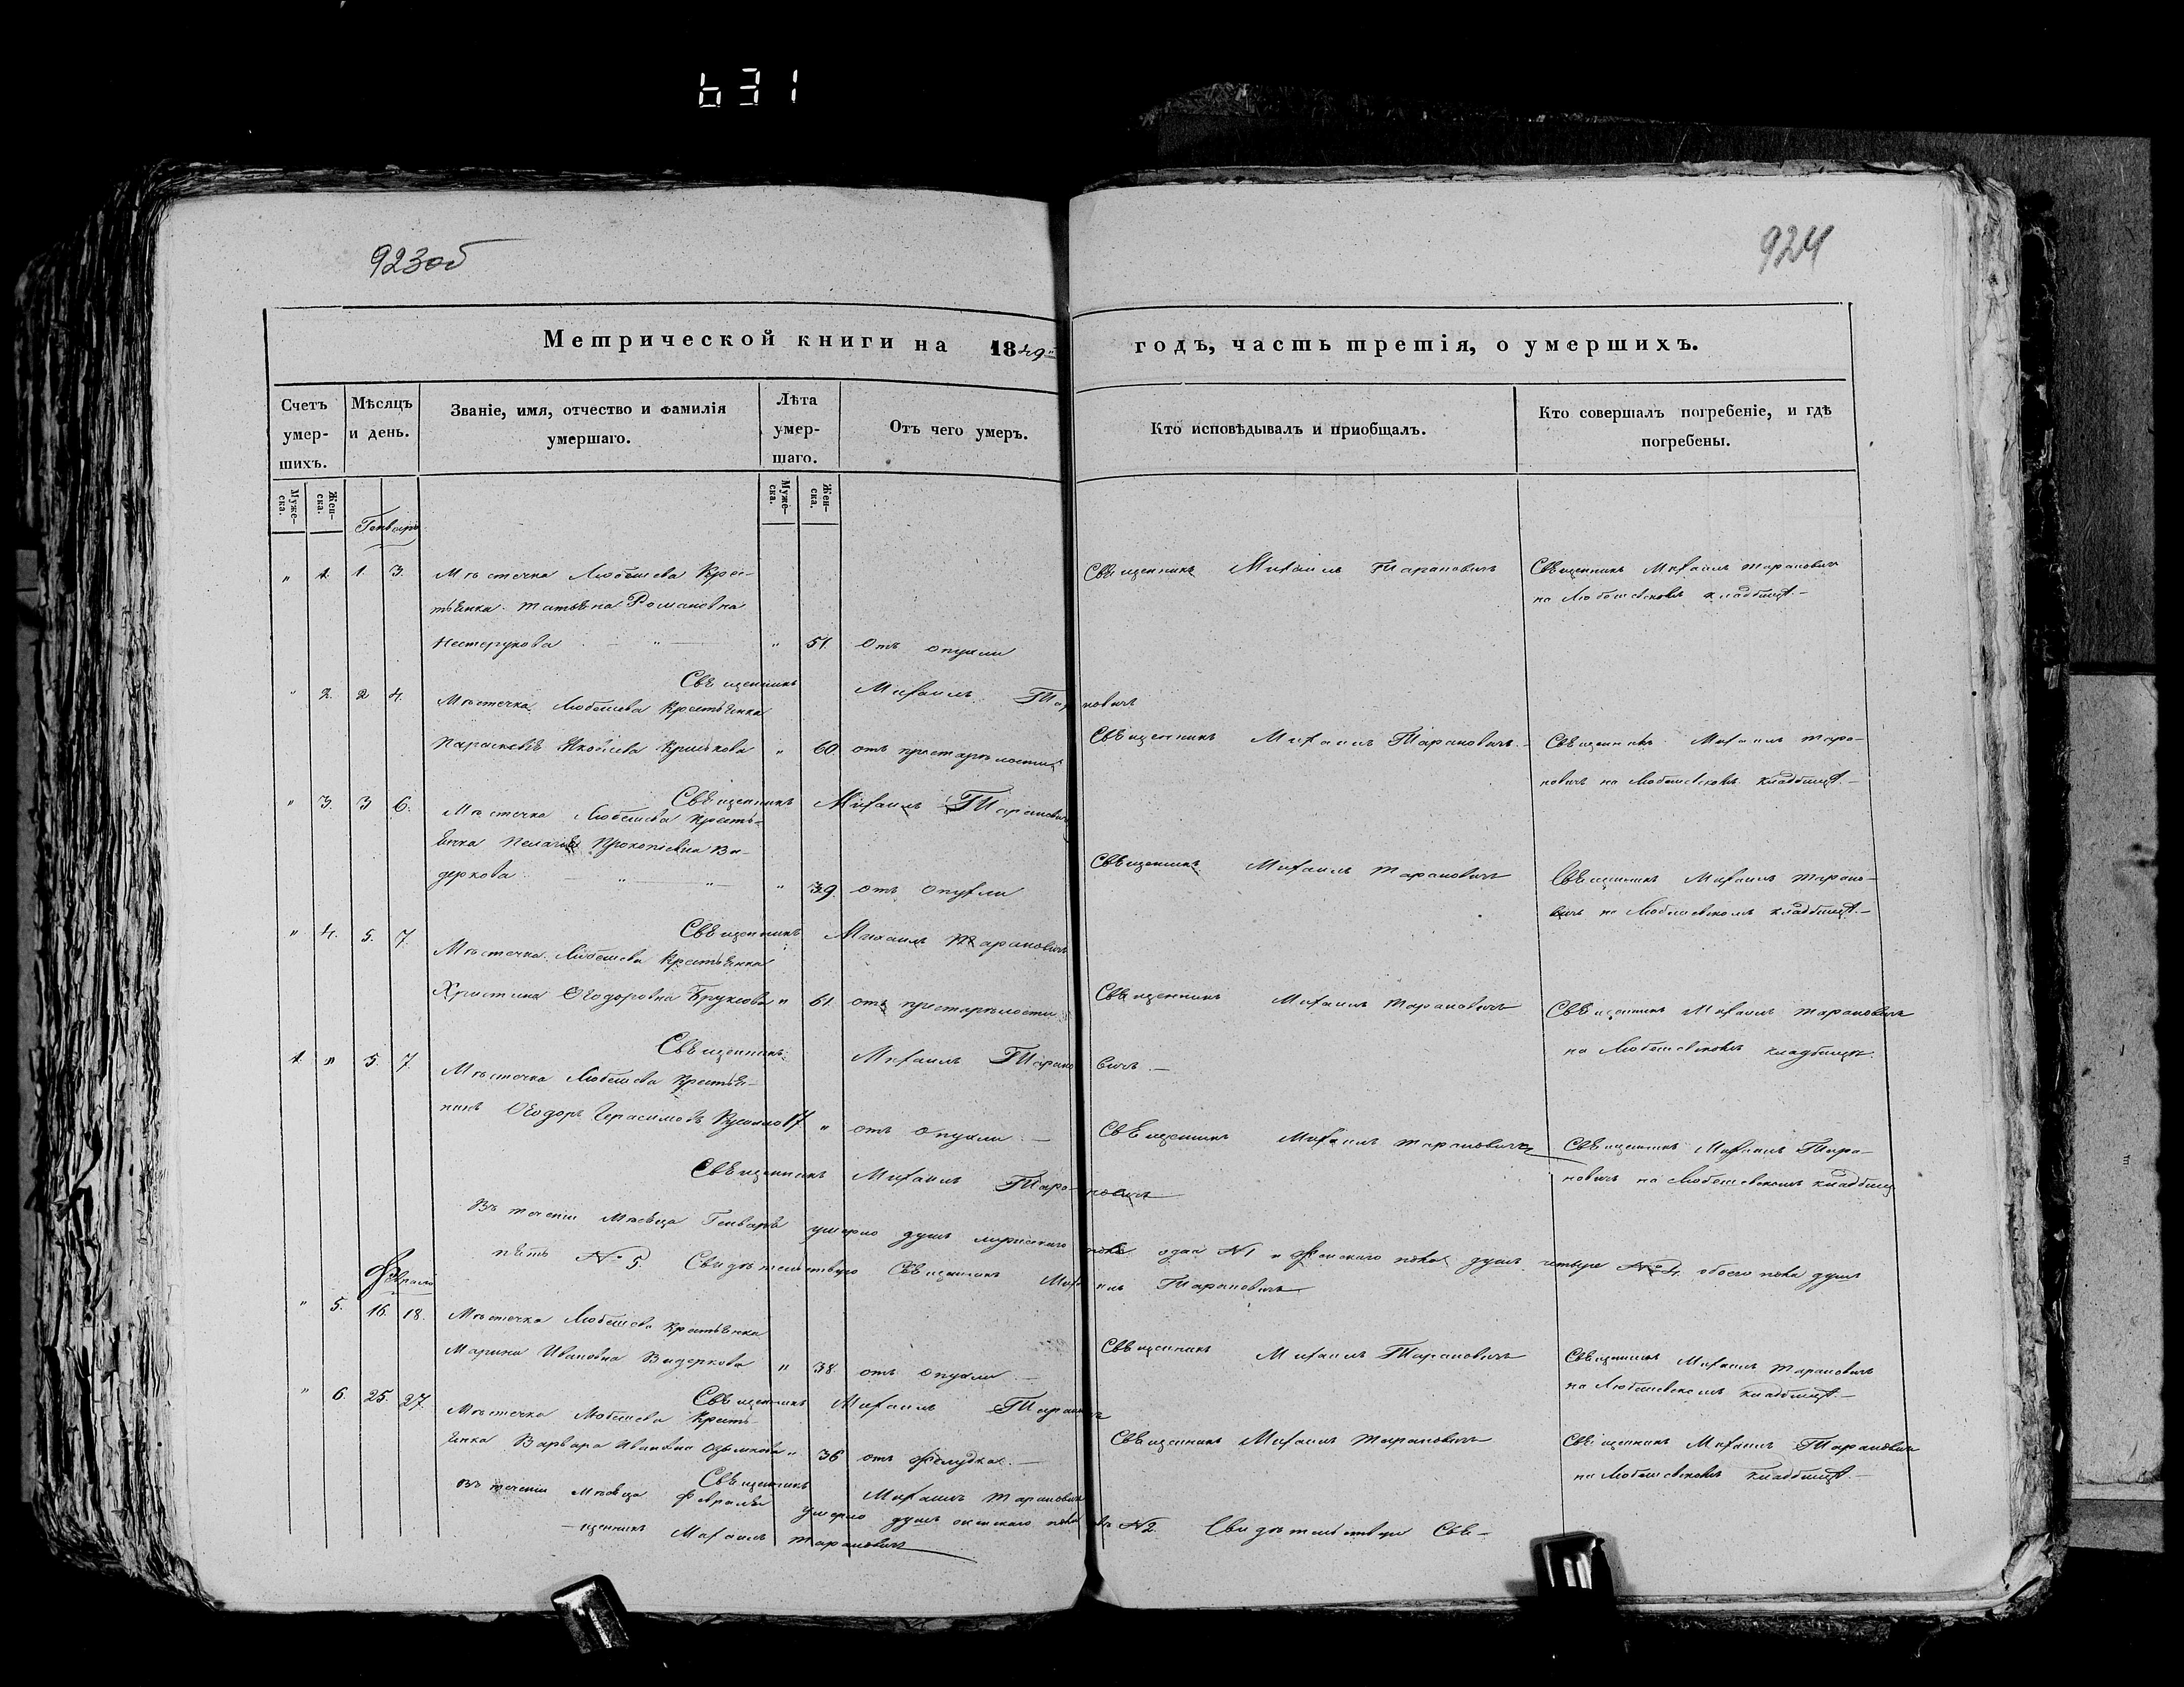 631
923об
924
Метрической книги на 1849й годъ, часть третія, о умершихъ.
Счетъ умер-шихъ.
Мѣсяцъ и день.
Званіе, имя, отчество и фамилія умершаго.
Лѣта умер-шаго.
Отъ чего умеръ.
Кто исповѣдывалъ и приобщалъ.
Кто совершалъ погребеніе, и гдѣ погребены.
Муже-ска.
Жен-ска.
Муже-ска.
Жен-ска.
Генварь
" 1. 1. 3. Мѣстечка Любешева Крес-
тьянка Татьяна Романовна
Нестерукова " 51. отъ опухли
Священникъ Михаилъ Тарановичъ
Священникъ Михаилъ Тарановичъ
на Любешевскомъ кладбищѣ.-
Священникъ Михаилъ Тарановичъ
" 2. 2 4. Мѣстечка Любешева Крестьянка
Параскевія Яковлева " 60 отъ престарѣлости
Священникъ Михаилъ Тарановичъ.-
Священникъ Михаилъ Тара-
новичъ на Любешевскомъ кладбищѣ.-
Священникъ Михаилъ Тарановичъ
" 3. 3 6. Мѣстечка Любешева Кресть-
янка Пелагія Прокопіевна Ви-
деркова " 39. отъ опухли
Священникъ Михаилъ Тарановичъ
Священникъ Михаилъ Тарано-
вичъ на Любешевскомъ кладбищѣ.-
Священникъ Михаилъ Тарановичъ
" 4. 5. 7. Мѣстечка Любешева Крестьянка
Христина Ѳеодоровна " 61. отъ престарѣлости
Священникъ Михаилъ Тарановичъ
Священникъ Михаилъ Тарановичъ
на Любешевскомъ кладбищѣ.
Священникъ Михаилъ Тарановичъ.-
1. " 5. 7. Мѣстечка Любешева Крестья-
нинъ Ѳеодоръ Герасимовъ 17. " отъ опухли.-
Священникъ Михаилъ Тарановичъ
Священникъ Михаилъ Тара-
новичъ на Любешевскомъ кладбищѣ
Священникъ Михаилъ Тарановичъ
Въ теченіи Мѣсяца Генваря умерло душъ мужескаго пола одна №1 и Женскаго пола душъ четыре №4. обоего пола душъ
пять №5. Свидѣтельствую Священникъ Михаилъ Тарановичъ
Февраль
" 5. 16. 18. Мѣстечка Любешева Крестьянка
Марина Ивановна Видеркова " 38. отъ опухли.-
Священникъ Михаилъ Тарановичъ
Священникъ Михаилъ Тарановичъ
на Любешевскомъ кладбищѣ.-
Священникъ Михаилъ Тарановичъ
" 6. 25. 27. Мѣстечка Любешева Кресть-
янка Варвара Ивановна " 36 отъ желудка.-
Священникъ Михаилъ Тарановичъ
Священникъ Михаилъ Тарановичъ
на Любешевскомъ кладбищѣ.-
Священникъ Михаилъ Тарановичъ
Въ теченіи Мѣсяца Февраля умерло душъ женскаго пола №2. Свидѣтельствую Свя-
щенникъ Михаилъ Тарановичъ